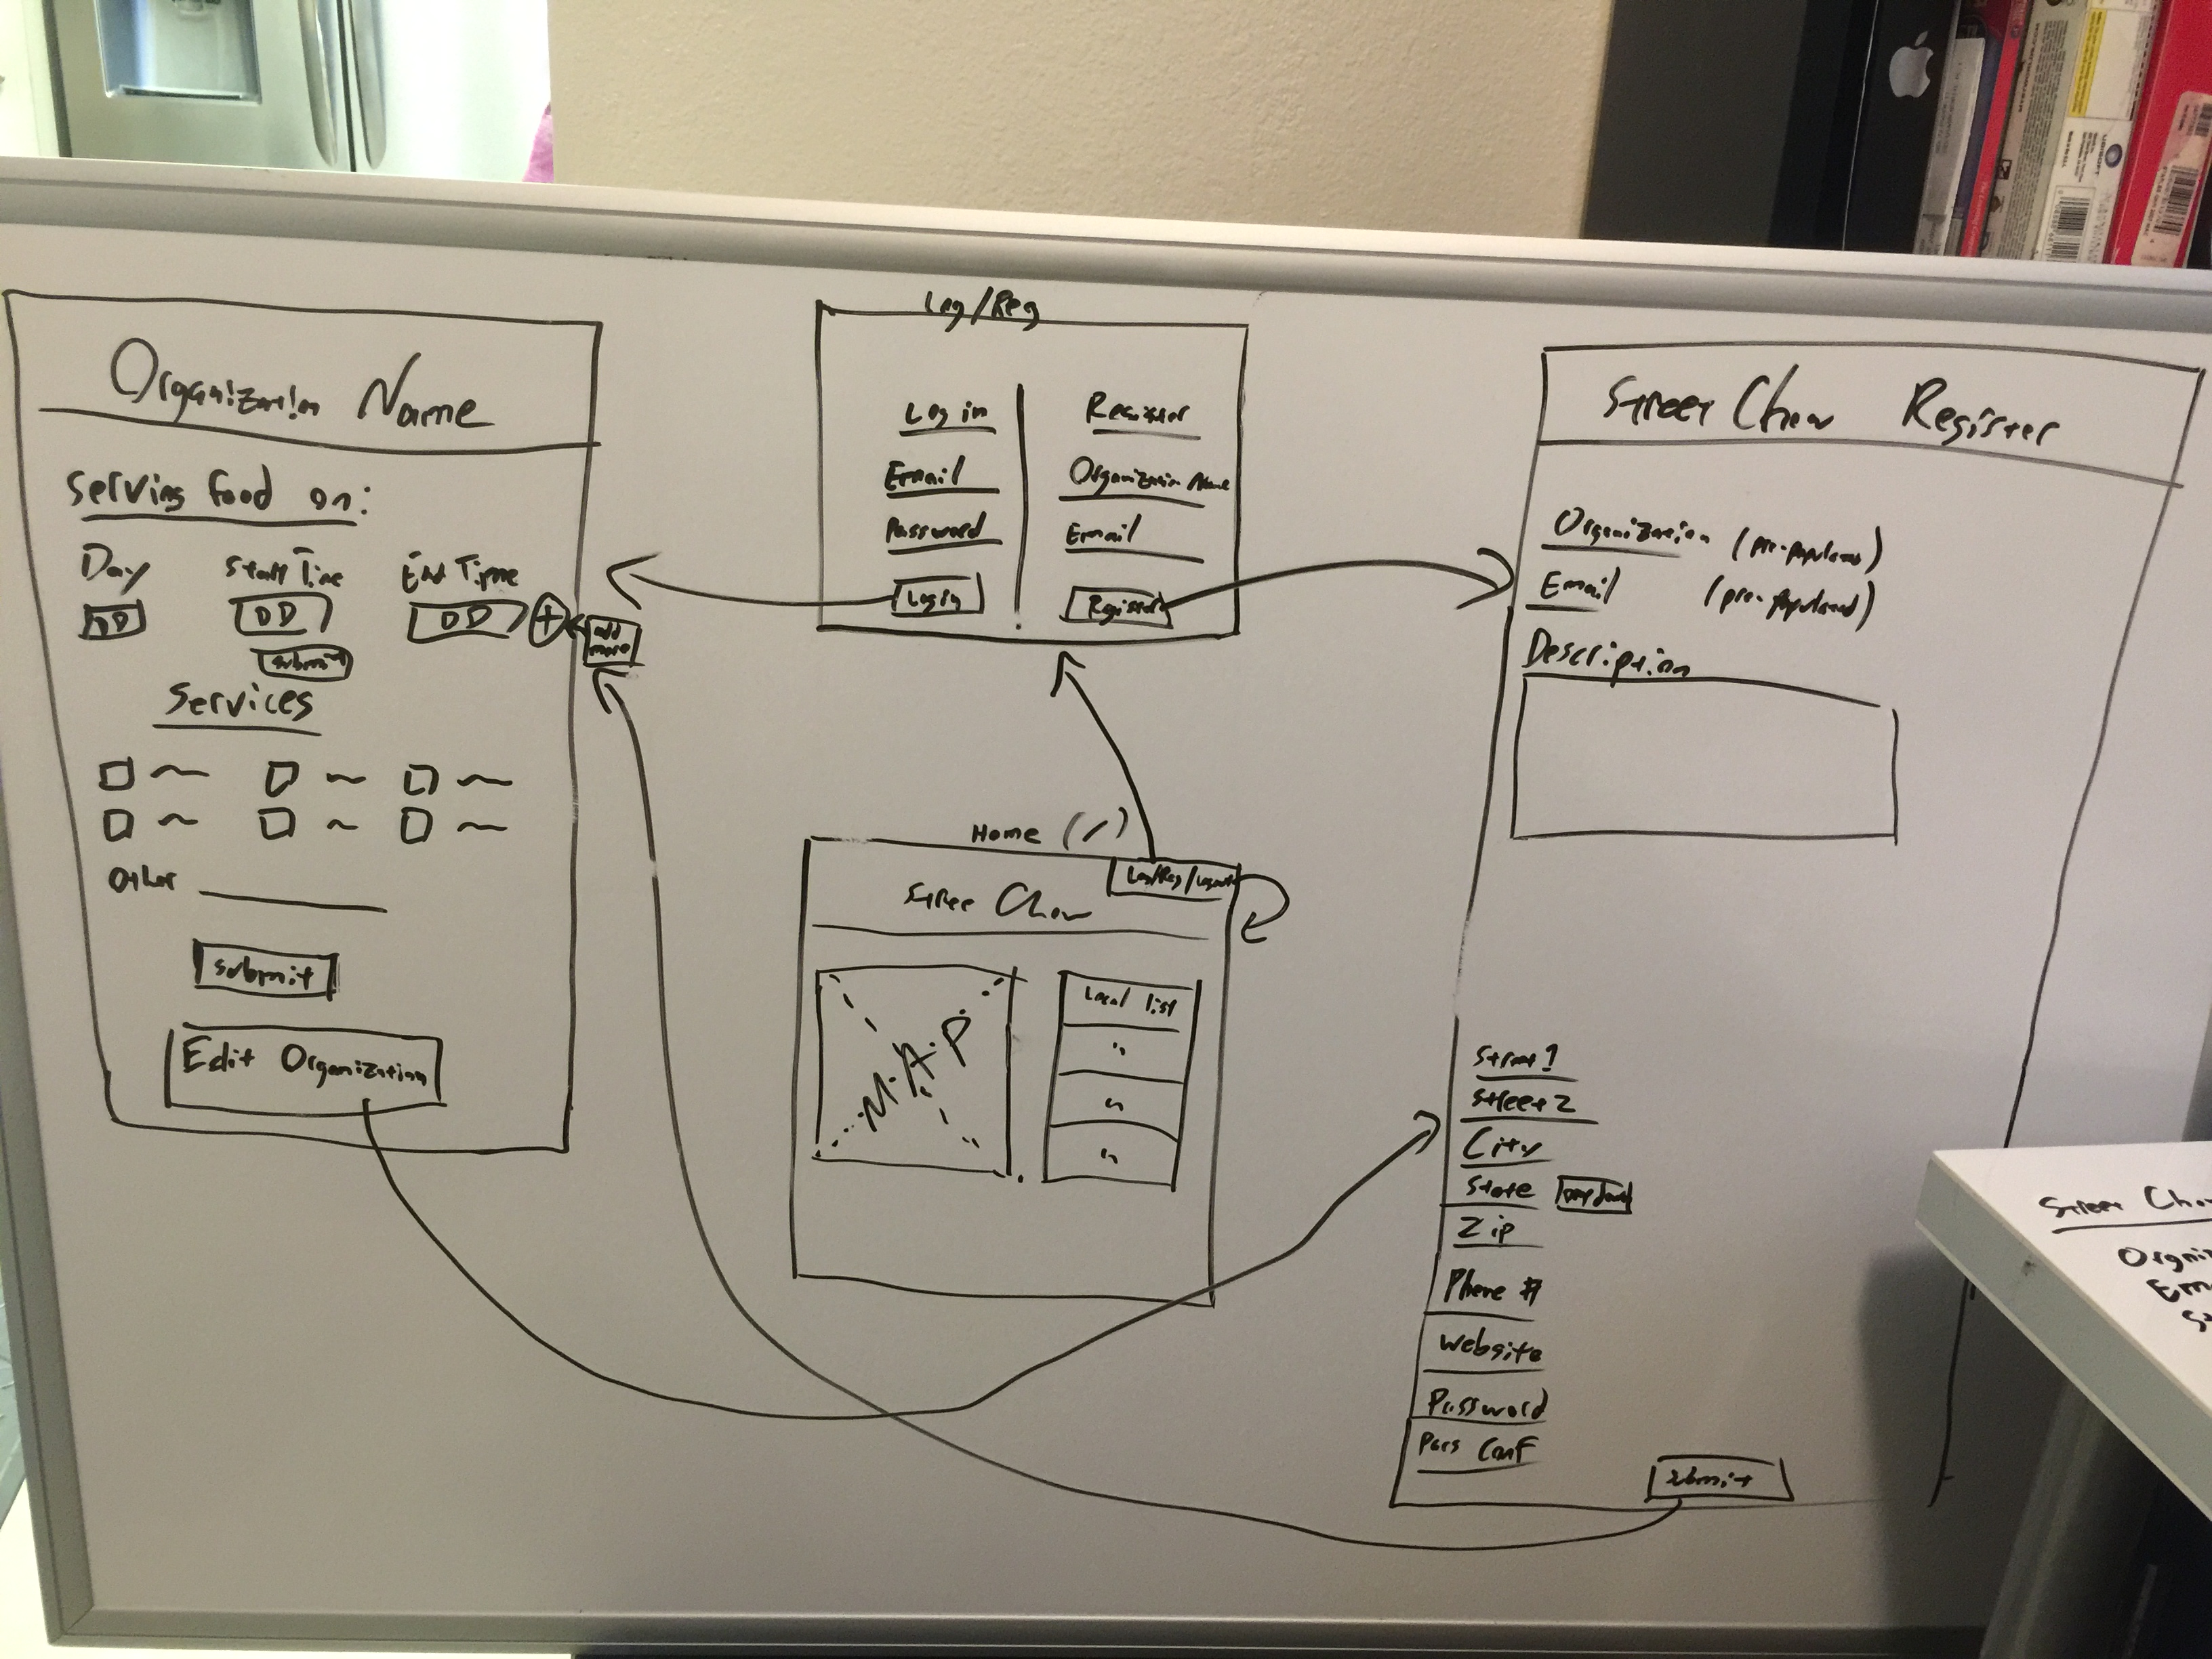 Organization Name
Serving food on:
Day Start Time End Time
DD DD DD + add more
submit
Services
Other
submit
Edit Organization
Log/Reg
Log in
Email
Password
Login
Register
Organization Name
Email
Register
Home (/)
Log/Reg/Logout
Stree Chow
M.A.P
Local list
"
"
"
Street Chow Register
Organization (pre-populated)
Email (pre-populated)
Description
Street 1
Street 2
City
State
Zip
Phone #
Website
Password
Pass Conf
submit
Street Cho
Organi
Em